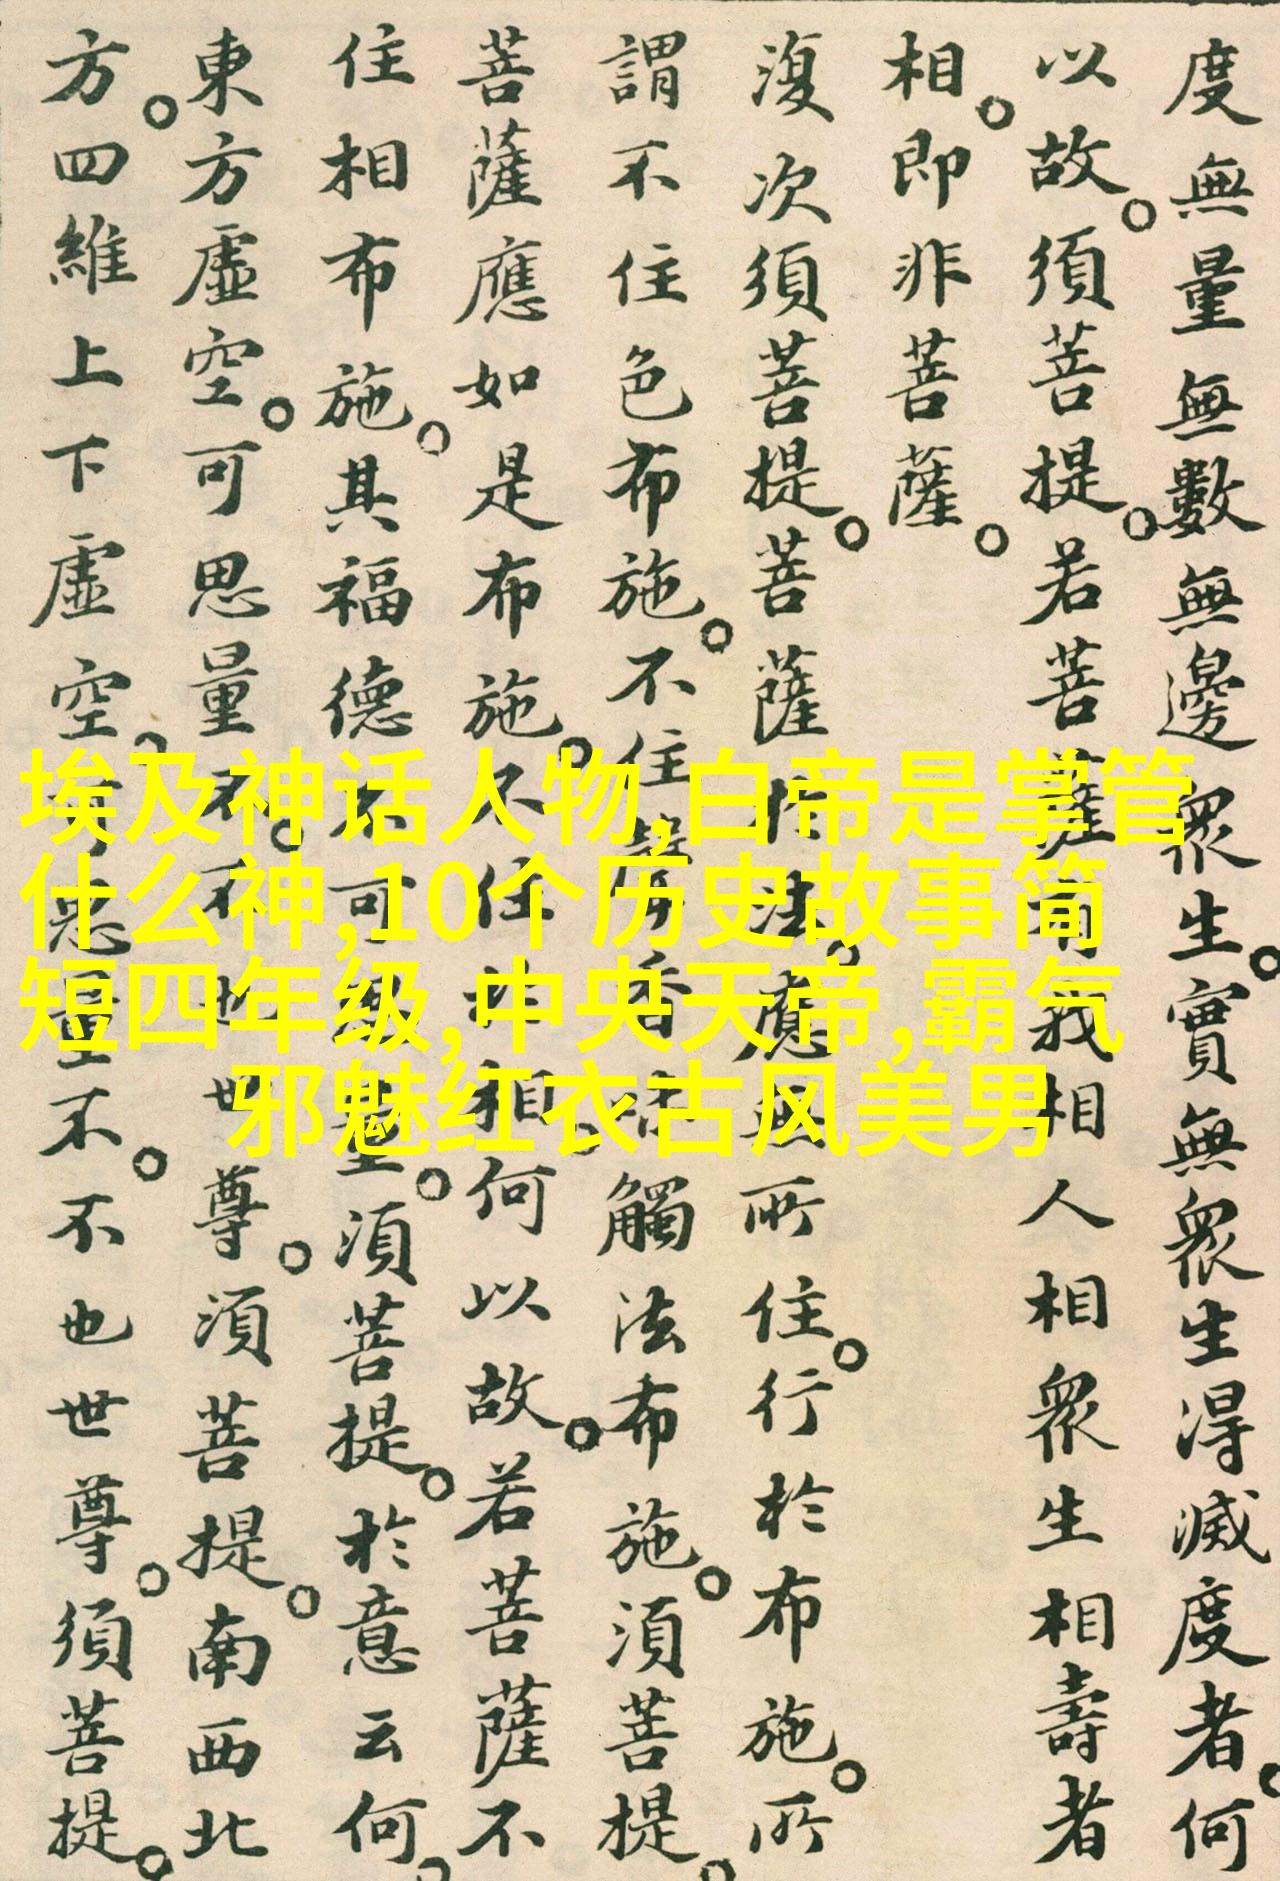 度無量無數無邊眾生。實無眾生得滅度者。何
以故。須菩提。若菩薩有我相人相眾生相壽者
相。即非菩薩。
復次須菩提。菩薩於法。應無所住。行於布施。所
謂不住色布施。不住聲香味觸法布施。須菩提。
菩薩應如是布施。不住於相。何以故。若菩薩不
住相布施。其福德不可思量。須菩提。於意云何。
東方虛空。可思量不。不也世尊。須菩提。南西北
方。四維上下虛空。可思量不。不也世尊。須菩提。
埃及神话人物,白帝是掌管
什么神,10个历史故事简
短四年级,中央天帝,霸气
邪魅红衣古风美男